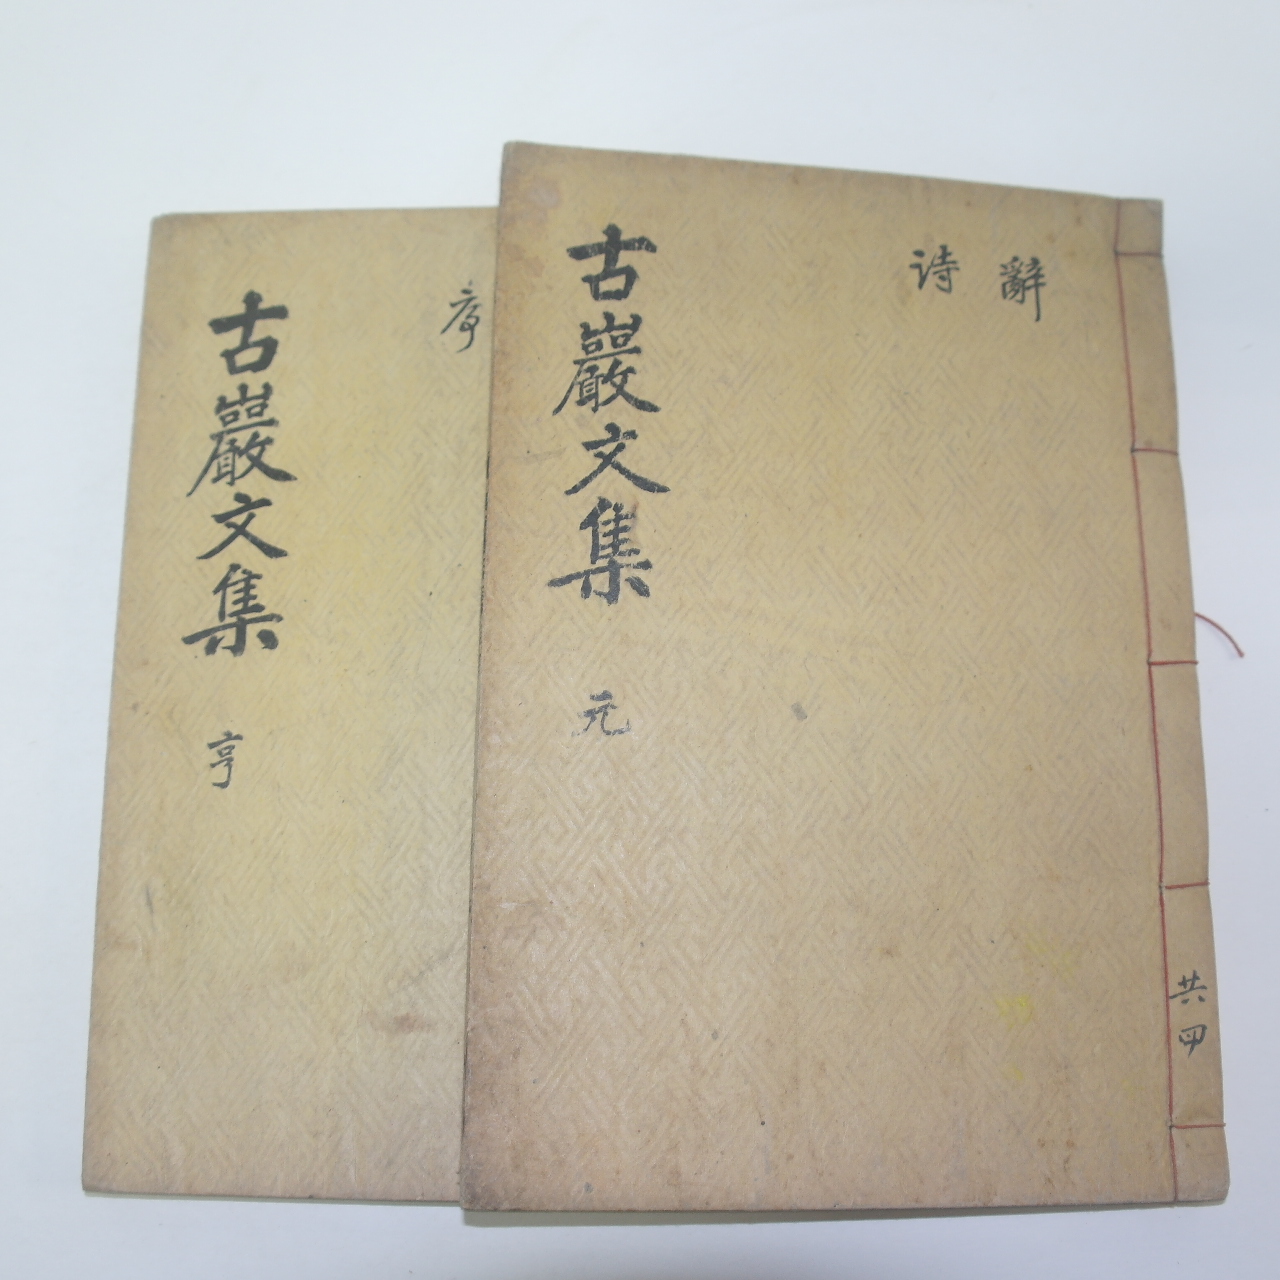 辭
詩
古巖文集 元
共四
序
古巖文集 亨